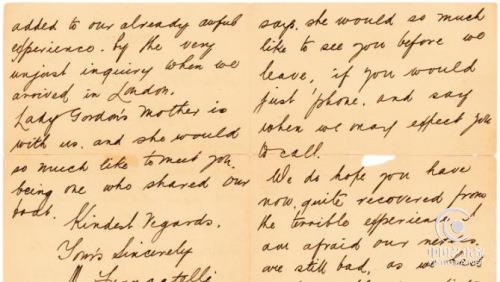 added to our already awful
experience. by the very
unjust inquiry when we
arrived in London.
Lady Gordon's Mother is
with us. and she would
so much like to meet you.
being one who shared our
boat.
Kindest Regards.
Yours Sincerely
Francatelli
says. she would so much
like to see you before we
leave, if you would
just 'phone. and say
when we may expect you
to call.
We do hope you have
now, quite recovered from
the terrible experience. I
am afraid our nerves
are still bad, as we had